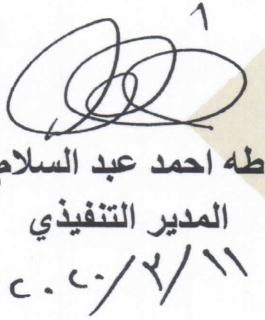 طه احمد عبد السلام
المدير التنفيذي
٢٠٢٠/٣/١١